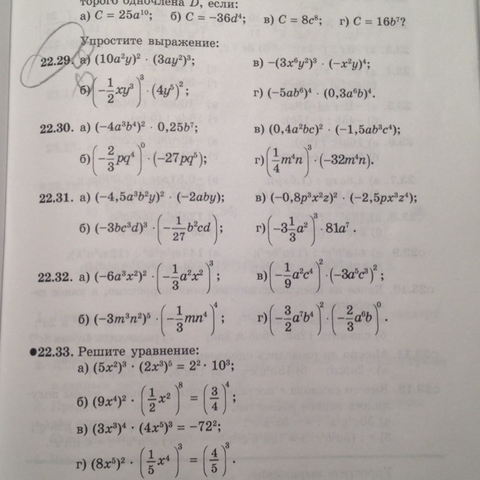 торого одночлена D, если:
а) C = 25a¹⁰; б) C = −36d⁴; в) C = 8c⁶; г) C = 16b⁷?
Упростите выражение:
22.29. а) (10a²y)² · (3ay²)³; в) −(3x⁶y²)³ · (−x²y)⁴;
б) (−1/2 xy³)³ · (4y⁵)²; г) (−5ab⁶)⁴ · (0,3a⁶b)⁴.
22.30. а) (−4a³b⁴)² · 0,25b⁷; в) (0,4a²bc)² · (−1,5ab³c⁴);
б) (−2/3 pq⁴)⁰ · (−27pq⁵); г) (1/4 m⁴n)³ · (−32m⁴n).
22.31. а) (−4,5a³b²y)² · (−2aby); в) (−0,8p³x²z)² · (−2,5px³z⁴);
б) (−3bc³d)³ · (−1/27 b²cd); г) (−3 1/3 a²)³ · 81a⁷.
22.32. а) (−6a³x²)² · (−1/3 a²x²)³; в) (−1/9 a²c⁴)² · (−3a⁵c³)²;
б) (−3m³n²)⁵ · (−1/3 mn⁴)⁴; г) (−3/2 a⁷b⁴)² · (−2/3 a⁶b)⁰.
●22.33. Решите уравнение:
а) (5x²)³ · (2x³)⁵ = 2² · 10³;
б) (9x⁴)² · (1/2 x²)⁸ = (3/4)⁴;
в) (3x³)⁴ · (4x⁵)³ = −72²;
г) (8x⁵)² · (1/5 x⁴)³ = (4/5)³.